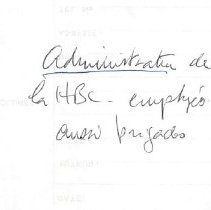 Administrateur de
la HBC - employés
aussi brigades